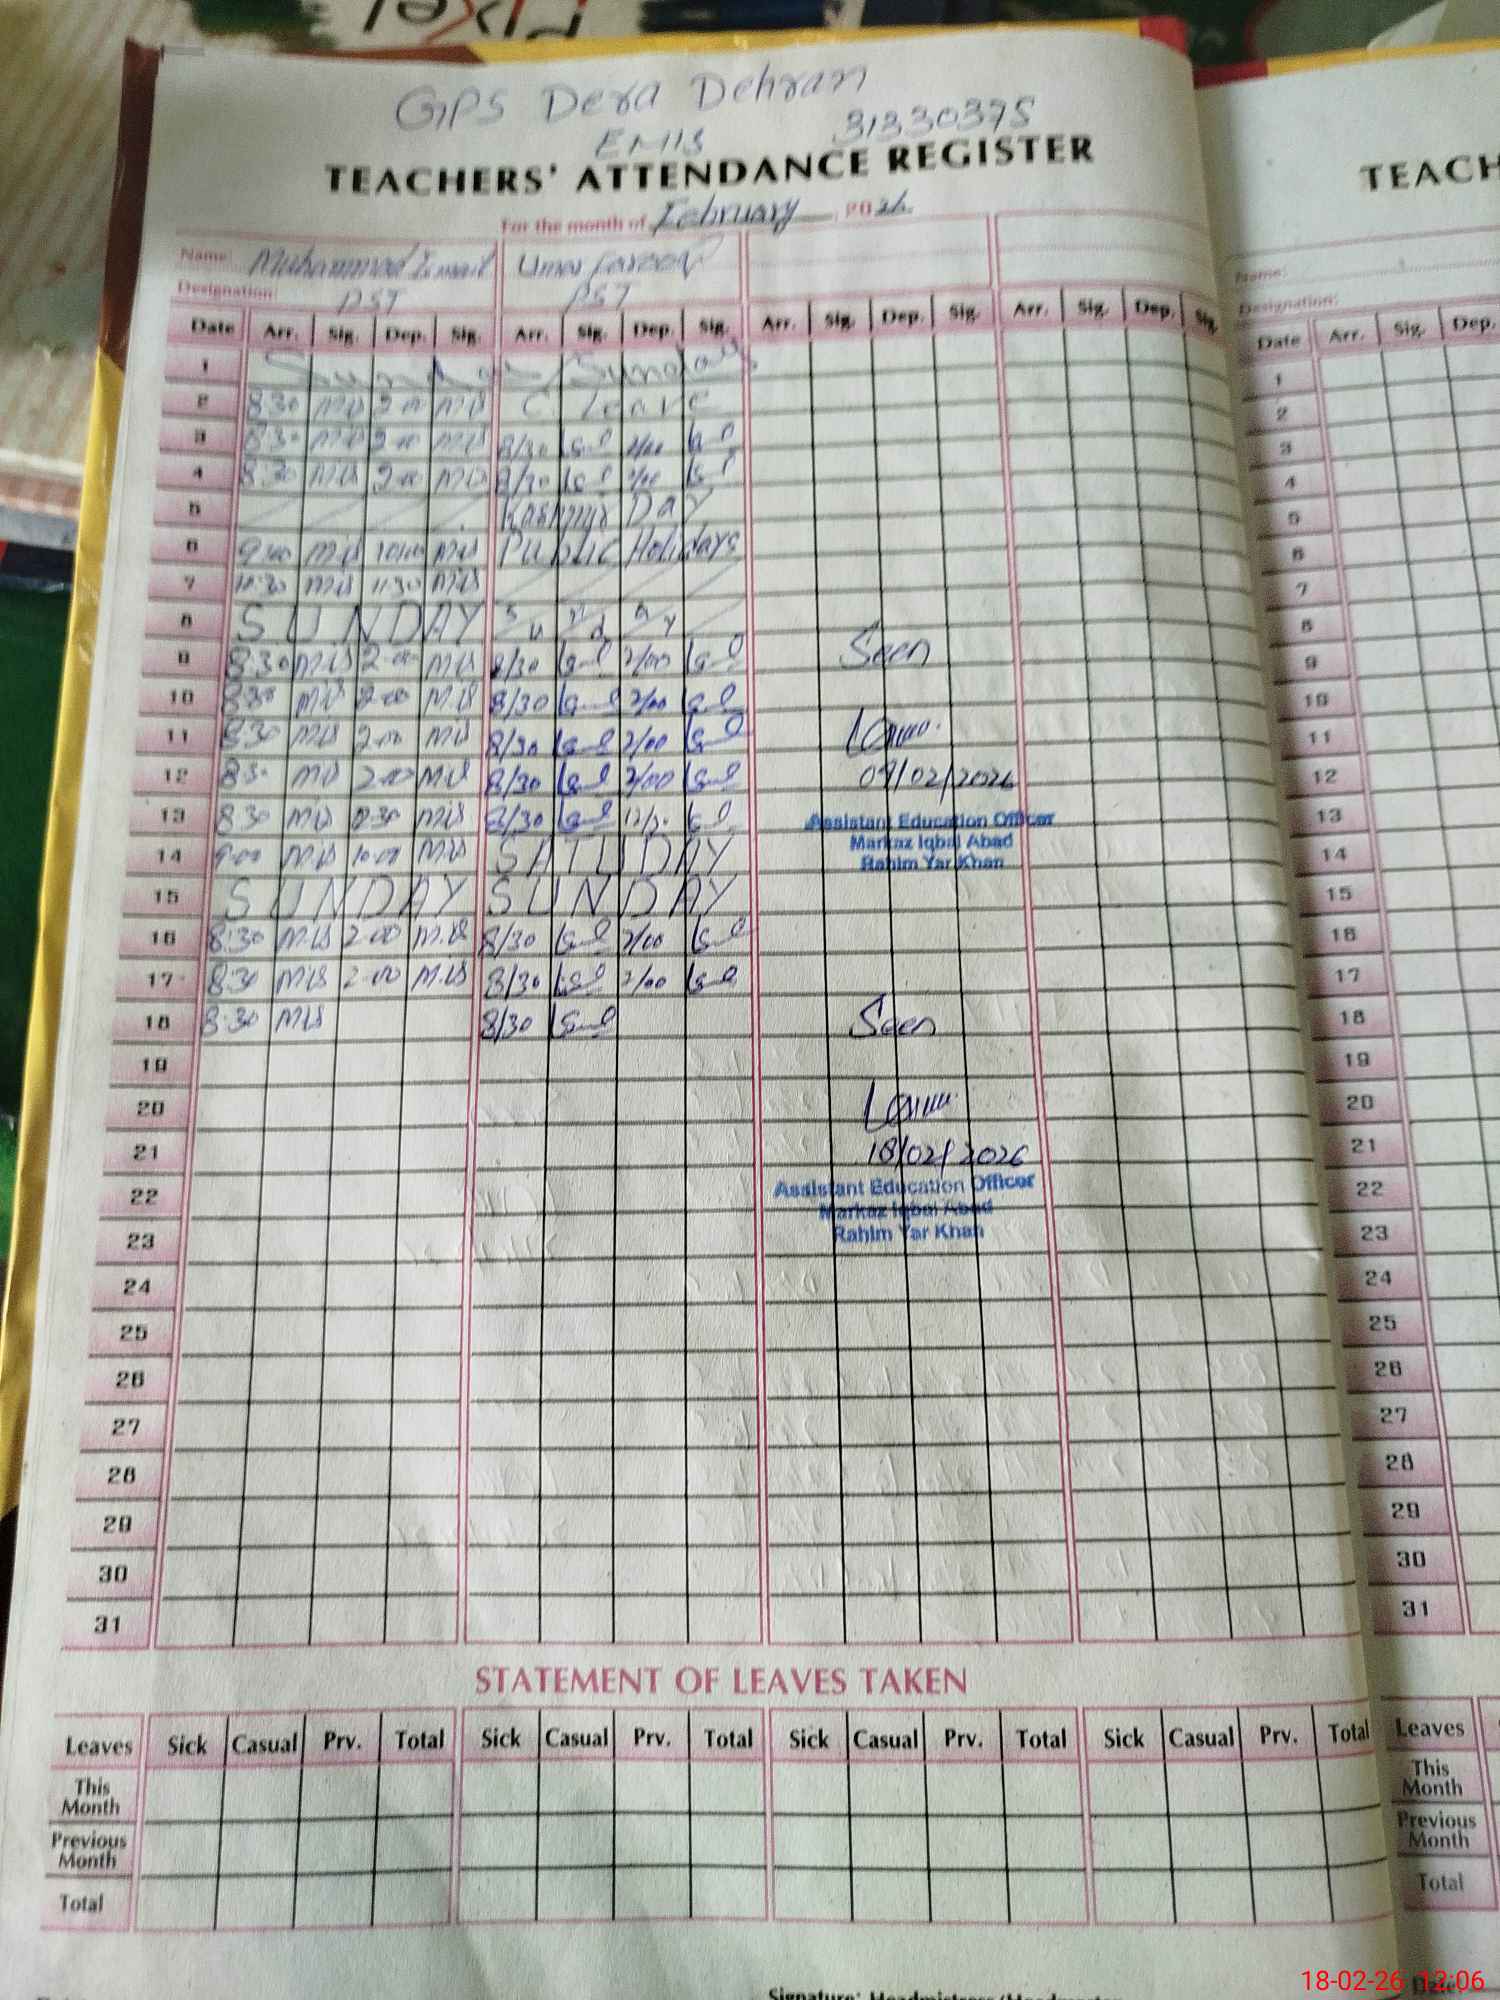 GPS Dera Dehran
EMIS 31330375
TEACHERS' ATTENDANCE REGISTER
For the month of February 2026
Name: Muhammad Ismail Umar Farooq
Designation: PST PST
Date Arr. Sig. Dep. Sig. Arr. Sig. Dep. Sig. Arr. Sig. Dep. Sig. Arr. Sig. Dep. Sig.
1 Sunday Sunday
2 8:30 MIS 2:00 MIS C Leave
3 8:30 MIS 2:00 MIS 8/30 2/00
4 8:30 MIS 2:00 MIS 8/30 2/00
5 Kashmir Day
6 9:00 MIS 10:00 MIS Public Holidays
7 MIS 11:30 MIS
8 SUNDAY Sunday
9 8:30 MIS 2:00 MIS 8/30 2/00 Seen
10 8:30 MIS 2:00 MIS 8/30 2/00
11 8:30 MIS 2:00 MIS 8/30 2/00
12 8:30 MIS 2:00 MIS 8/30 2/00 09/02/2026
13 8:30 MIS 12:30 MIS 8/30 12/30 Assistant Education Officer
Markaz Iqbal Abad
14 9:00 MIS 10:00 MIS SATUDAY Rahim Yar Khan
15 SUNDAY SUNDAY
16 8:30 MIS 2:00 MIS 8/30 2/00
17 8:30 MIS 2:00 MIS 8/30 2/00
18 8:30 MIS 8/30 Seen
19
20
21 18/02/2026
22 Assistant Education Officer
Markaz Iqbal Abad
23 Rahim Yar Khan
24
25
26
27
28
29
30
31
STATEMENT OF LEAVES TAKEN
Leaves Sick Casual Prv. Total Sick Casual Prv. Total Sick Casual Prv. Total Sick Casual Prv. Total
This Month
Previous Month
Total
TEACH
Name:
Designation:
Date Arr. Sig. Dep.
1
2
3
4
5
6
7
8
9
10
11
12
13
14
15
16
17
18
19
20
21
22
23
24
25
26
27
28
29
30
31
Leaves
This Month
Previous Month
Total
18-02-26 12:06